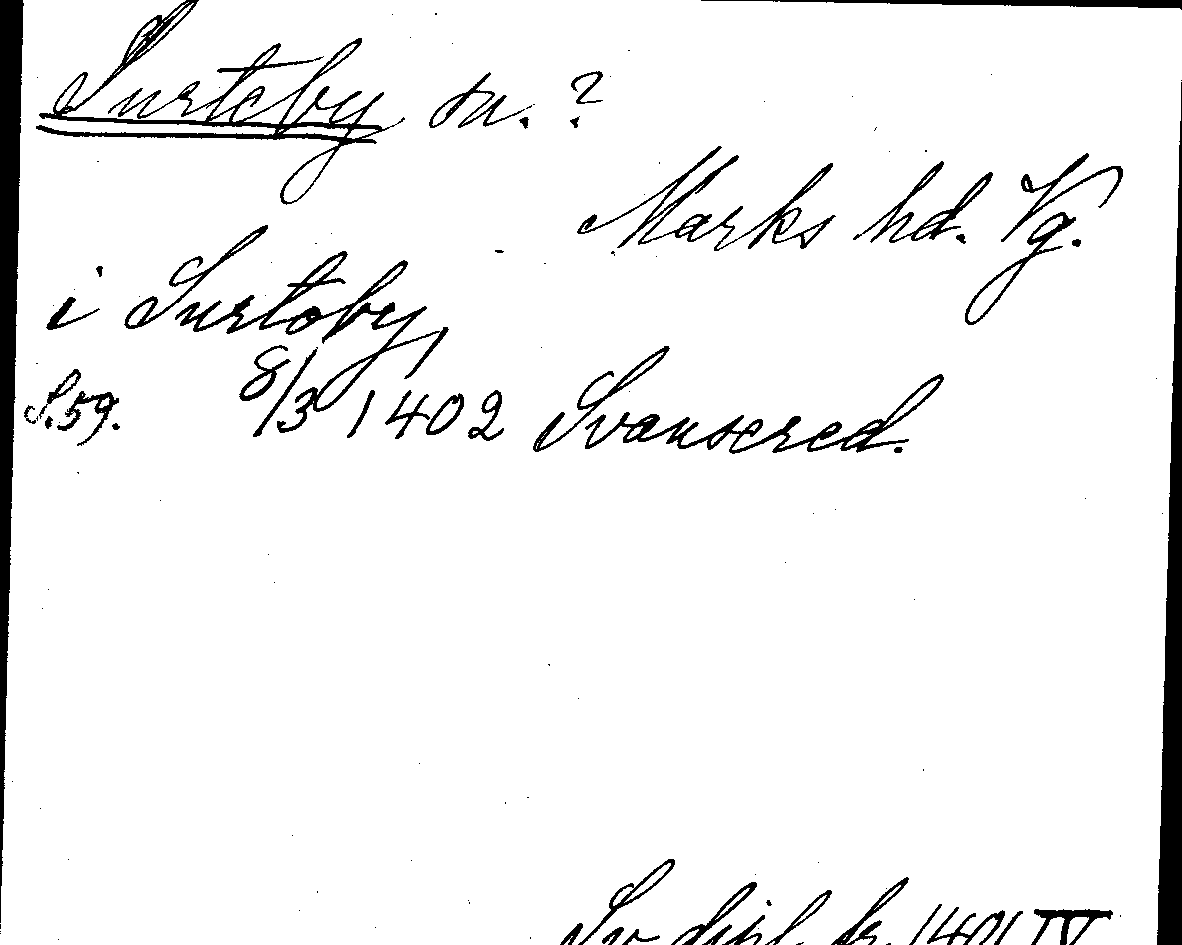 Surteby sn. ?
Marks hd. Vg.
i Surtoby,
S. 59. 8/3 1402 Svansered.
Sv. dipl. fr. 1401 IV